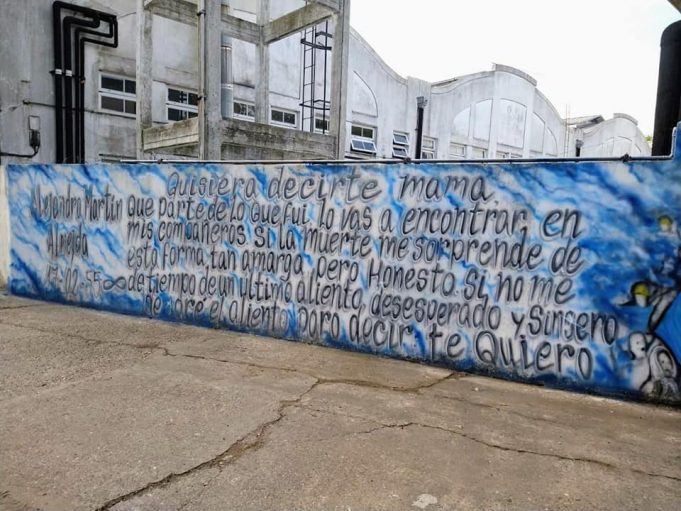 Quisiera decirte mama
que parte de lo que fui lo vas a encontrar, en
mis compañeros. Si la muerte me sorprende de
esta forma tan amarga, pero Honesta Si, no me
de tiempo de un ultimo aliento, desesperado y Sinsero
aliento para decir te Quiero
Martin
Almeida